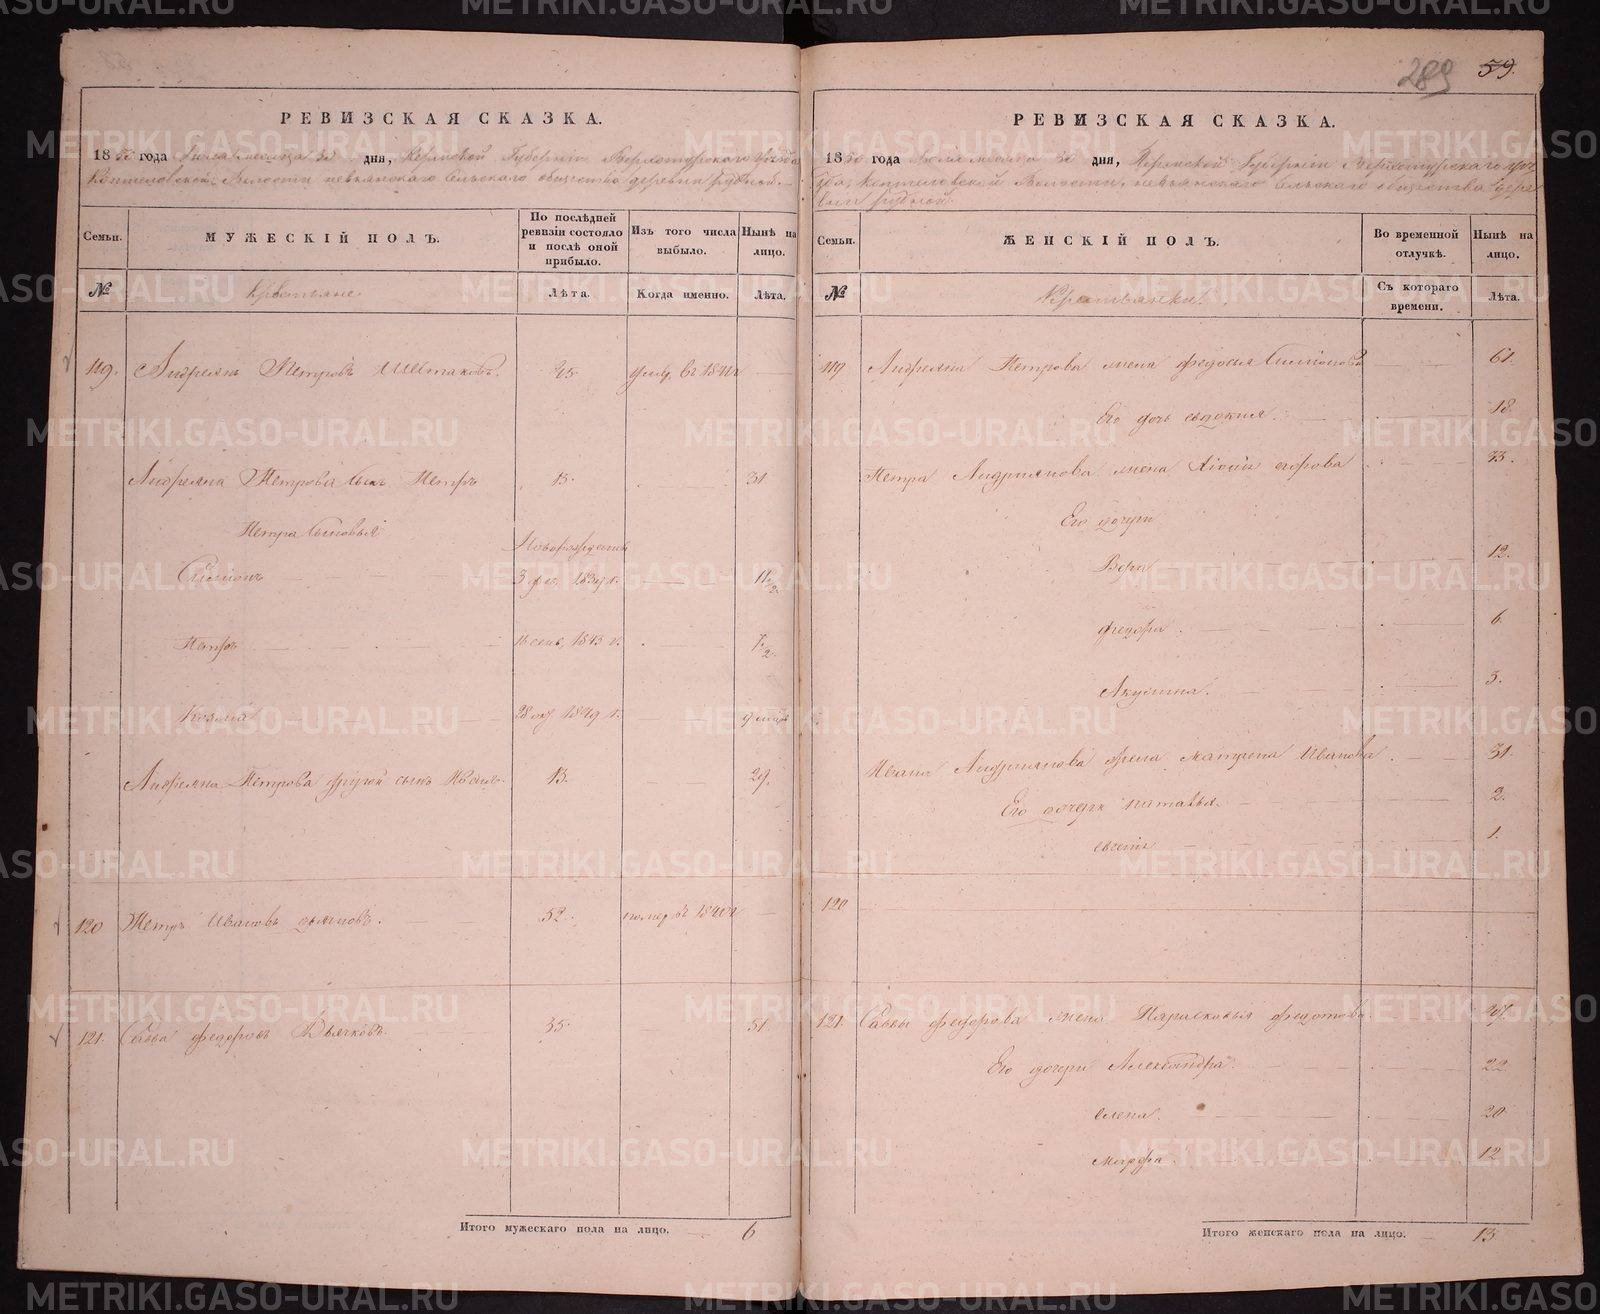 289 59.
РЕВИЗСКАЯ СКАЗКА.
1850 года Іюля месяца 30 дня, Пермской Губерніи Верхотурскаго уѣзда
Коптеловской Волости невьянскаго Сельскаго общества деревни рудной.
Семьи. МУЖЕСКІЙ ПОЛЪ. По послѣдней ревизіи состояло и послѣ оной прибыло. Изъ того числа выбыло. Нынѣ на лицо.
№ крестьяне Лѣта. Когда именно. Лѣта.
119. Андреянъ Петровъ Шестаковъ. 45 умер. въ 1841 г
Андреяна Петрова сынъ Петръ 15. 31
Петра сыновья
Новорожденны
Симіонъ 3 фев. 1839 г. 11 1/2
Петръ сен. 1843 г. 7 1/2
Козма 28 ок 1849 г. 9 мѣс
Андреяна Петрова другой сынъ Иванъ. 13. 29.
120 Петръ Ивановъ 52. помер въ 1840 г
121. Савва федоровъ Дьячковъ. 35. 51
Итого мужескаго пола на лицо. 6
РЕВИЗСКАЯ СКАЗКА.
1850 года Іюля месяца 30 дня, Пермской Губерніи Верхотурскаго уѣз-
да, Коптеловской Волости, невьянскаго Сельскаго общества дере-
вни рудной.
Семьи. ЖЕНСКІЙ ПОЛЪ. Во временной отлучкѣ. Нынѣ на лицо.
№ Крестьянки. Съ котораго времени. Лѣта.
119 Андреяна Петрова жена федосья Симіонова 61.
Его дочь евдокия. 18.
Петра Андриянова жена егорова 33.
Его дочери
Вера 12.
федора 6.
Акулина. 3.
Ивана Андриянова жена матрена Иванова 31.
Его дочери наталья. 2.
1.
120
121. Саввы федорова жена Парасковья федотова. 47.
Его дочери Александра. 22
елена. 20
марфа 12
Итого женскаго пола на лицо. 13
METRIKI.GASO-URAL.RU